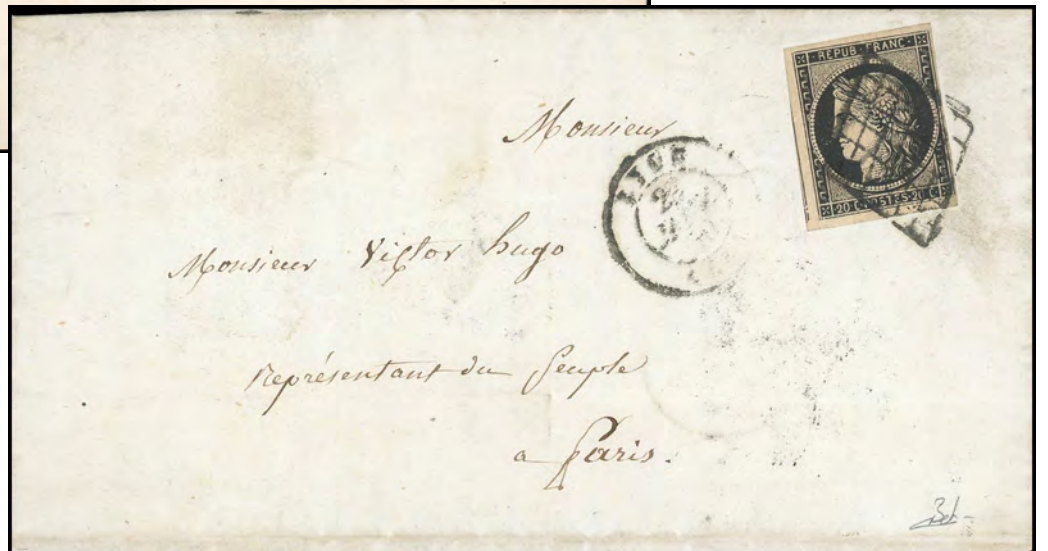 REPUB FRANC
20 C POSTES 20 C
Monsieur
LYON
Monsieur Victor hugo
Représentant du Peuple
a Paris.